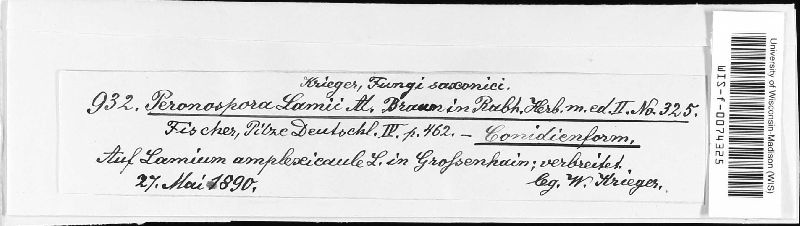 Krieger, Fungi saxonici.
932. Peronospora Lamii Al. Braun in Rabh. Herb. m. ed. II. No. 325.
Fischer, Pilze Deutschl. IV. p. 462. — Conidienform.
Auf Lamium amplexicaule L. in Grossenhain; verbreitet.
27. Mai 1890.
lg. W. Krieger.
University of Wisconsin-Madison (WIS)
WIS-f-0074325